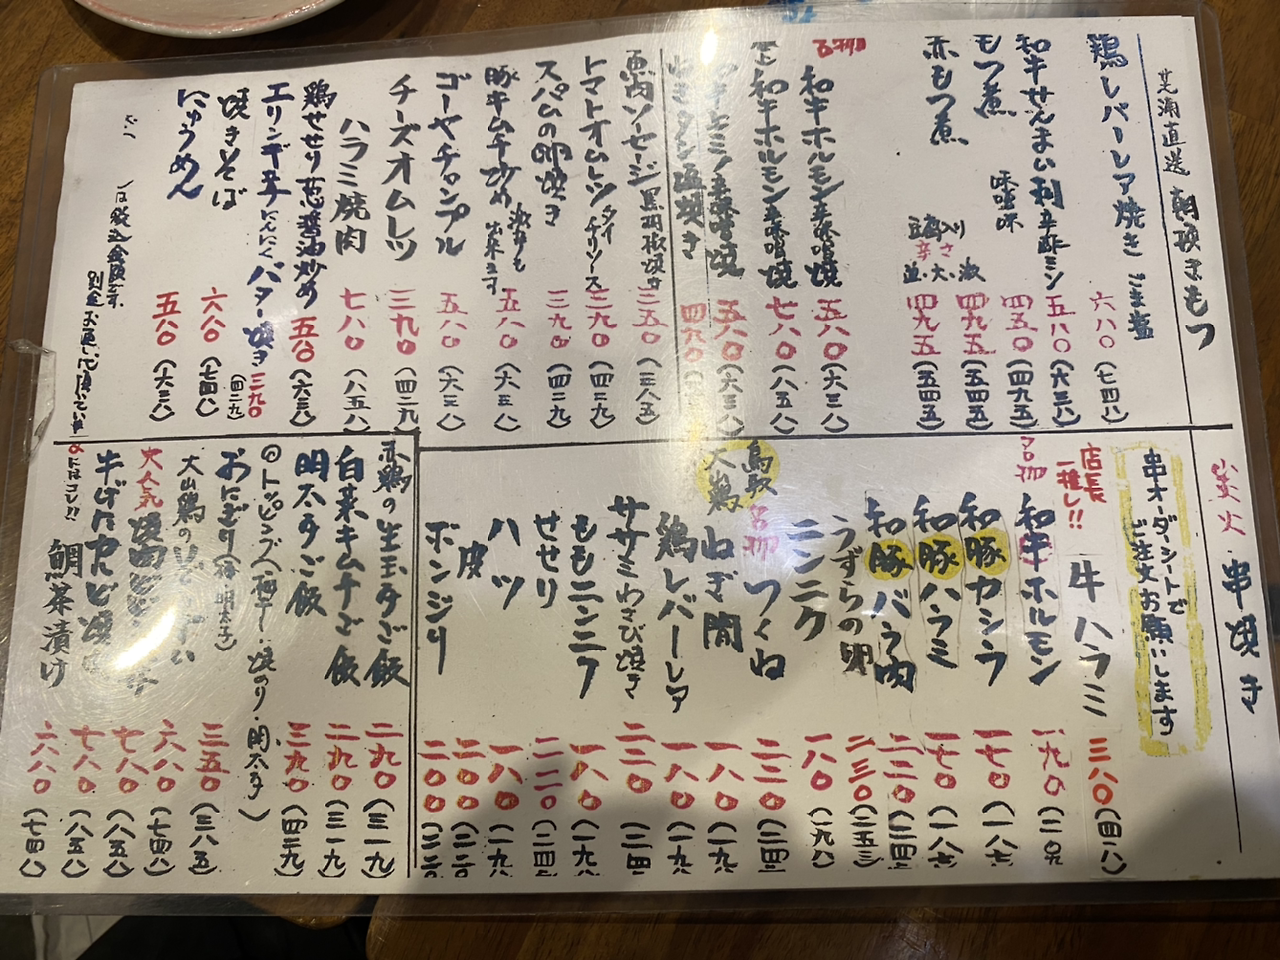 芝浦直送 朝挽きもつ
鶏レバーレア焼き ごま塩 六八〇 (七四八)
和牛せんまい刺 辛酢ミソ 五八〇 (六三八)
もつ煮 味噌味 四五〇 (四九五)
四九五 (五四五)
赤もつ煮 辛さ 並・大・激 四九五 (五四五)
名物
和牛ホルモン辛味噌焼 五八〇 (六三八)
和牛ホルモン辛味噌焼 七八〇 (八五八)
辛味噌焼 五八〇 (六三八)
タン塩焼き 四九〇
魚肉ソーセージ黒胡椒焼き 三五〇 (三八五)
トマトオムレツ タイチリソース 三九〇 (四二九)
スパムの卵焼き 三九〇 (四二九)
豚キムチ炒め 激辛も出来ます 五八〇 (六三八)
ゴーヤチャンプル 五八〇 (六三八)
チーズオムレツ 三九〇 (四二九)
ハラミ焼肉 七八〇 (八五八)
鶏せせり葱醤油炒め 五八〇 (六三八)
エリンギ茸にんにくバター焼き 三九〇 (四二九)
焼きそば 六八〇 (七四八)
にゅうめん 五八〇 (六三八)
は税込金額です。
炭火 串焼き
串オーダーシートで
ご注文お願いします
店長一推し!!
牛ハラミ 三八〇 (四一八)
名物 和牛ホルモン 一九〇 (二〇九)
和豚カシラ 一七〇 (一八七)
和豚ハラミ 一七〇 (一八七)
和豚バラ肉 二二〇
うずらの卵 二三〇 (二五三)
ニンニク 一八〇 (一九八)
鳥取大山鶏
名物 つくね 二二〇
ねぎ間 一八〇 (一九八)
鶏レバーレア 一八〇 (一九八)
ササミわさび焼き 二二〇
ももニンニク 一八〇 (一九八)
せせり 二二〇
ハツ 一八〇 (一九八)
皮 二〇〇 (二二〇)
ボンジリ 二〇〇 (二二〇)
赤鶏の生玉子ご飯 二九〇 (三一九)
白菜キムチご飯 二九〇 (三一九)
明太子ご飯 三九〇 (四二九)
◎トッピング(梅干し・焼のり・明太子)
おにぎり(梅・明太子) 三五〇 (三八五)
大山鶏の 六八〇 (七四八)
大人気 七八〇 (八五八)
七八〇 (八五八)
〆にはコレ!! 鯛茶漬け 六八〇 (七四八)